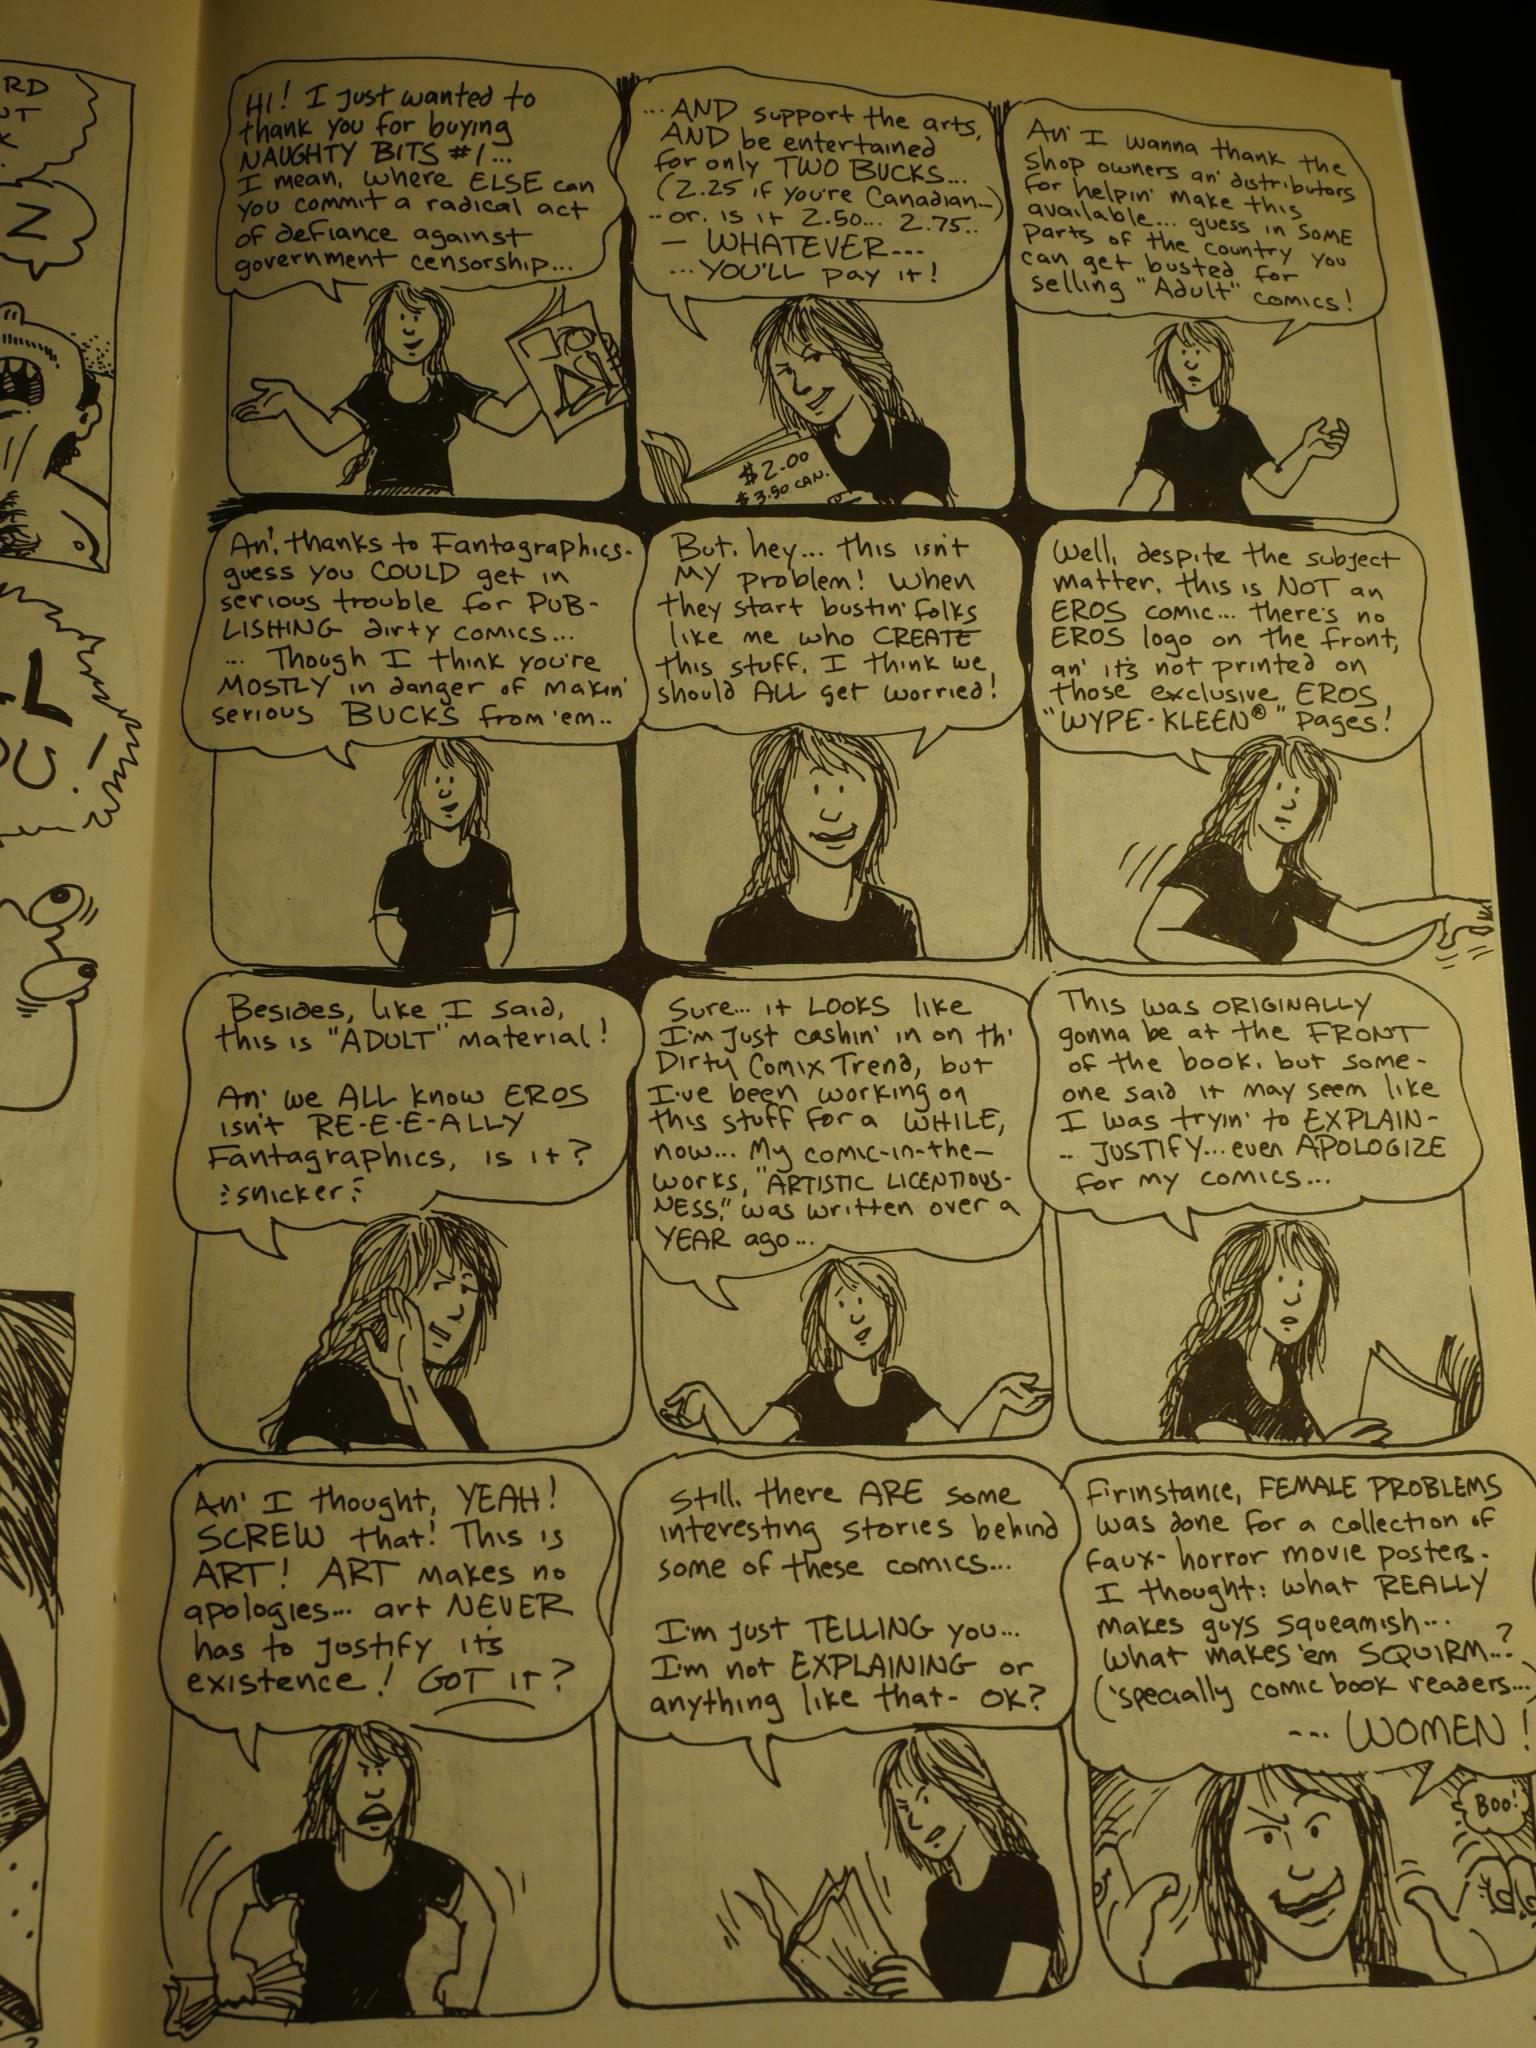 RD
UT
K
N
HI! I just wanted to
thank you for buying
NAUGHTY BITS #1...
I mean, where ELSE can
you commit a radical act
of defiance against
government censorship...
...AND support the arts,
AND be entertained
for only TWO BUCKS...
(2.25 if you're Canadian...)
..or. is it 2.50... 2.75..
— WHATEVER---
...YOU'LL pay it!
$2.00
$3.50 CAN.
An' I wanna thank the
shop owners an' distributors
for helpin' make this
available... guess in SOME
parts of the country you
can get busted for
selling "Adult" comics!
An', thanks to Fantagraphics-
guess you COULD get in
serious trouble for PUB-
LISHING dirty comics...
... Though I think you're
MOSTLY in danger of makin'
serious BUCKS from 'em..
But, hey... this isn't
MY problem! When
they start bustin' folks
like me who CREATE
this stuff, I think we
should ALL get worried!
Well, despite the subject
matter, this is NOT an
EROS comic... there's no
EROS logo on the front,
an' it's not printed on
those exclusive EROS
"WYPE-KLEEN®" pages!
Besides, like I said,
this is "ADULT" material!
An' we ALL know EROS
isn't RE-E-E-ALLY
Fantagraphics, is it?
snicker
Sure... it LOOKS like
I'm just cashin' in on th'
Dirty Comix Trend, but
I've been working on
this stuff for a WHILE,
now... My comic-in-the-
works, "ARTISTIC LICENTIOUS-
NESS," was written over a
YEAR ago...
This was ORIGINALLY
gonna be at the FRONT
of the book, but some-
one said it may seem like
I was tryin' to EXPLAIN-
.. JUSTIFY... even APOLOGIZE
for my comics...
An' I thought, YEAH!
SCREW that! This is
ART! ART makes no
apologies... art NEVER
has to justify it's
existence! GOT IT?
Still, there ARE some
interesting stories behind
some of these comics...
I'm just TELLING you...
I'm not EXPLAINING or
anything like that- OK?
Firinstance, FEMALE PROBLEMS
was done for a collection of
faux-horror movie posters.
I thought: what REALLY
makes guys squeamish...
what makes 'em SQUIRM...?
('specially comic book readers...)
--- WOMEN!
BOO!